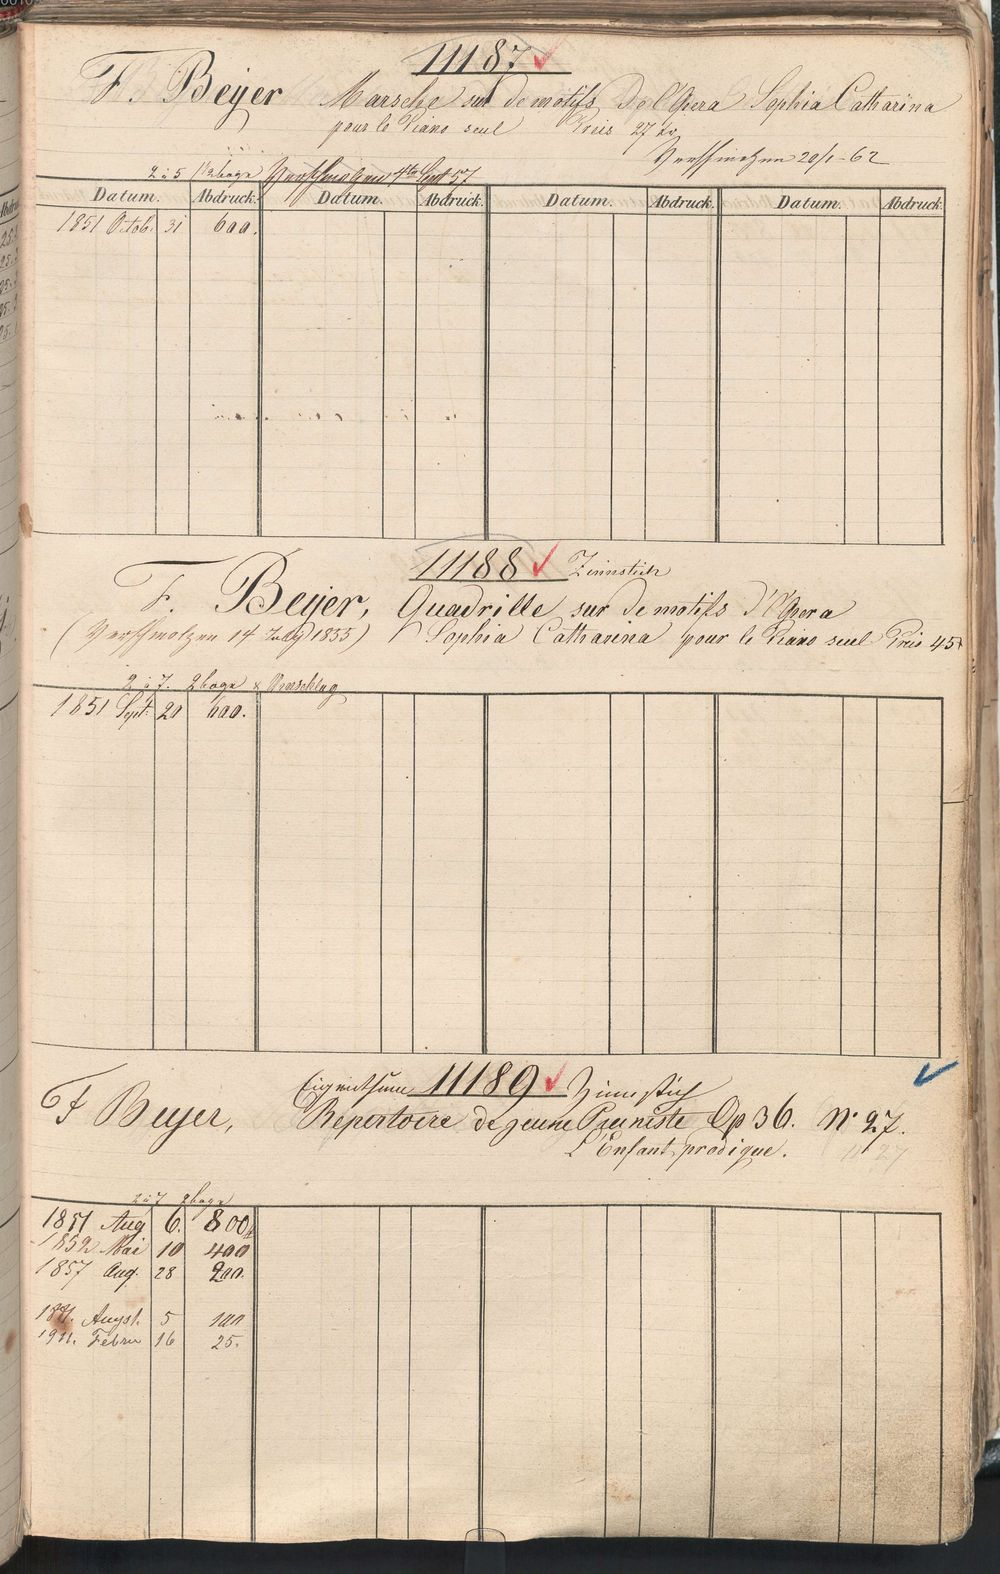 11187
F. Beyer Marsche sur de motifs d'o l'Opera Sophia Catharina
pour le Piano seul Preis 27 kr
Verschmolzen 20/1-62
2 à 5 1 1/2 bogn Verschmolzen 4te Sept 57
Datum. Abdruck. Datum. Abdruck. Datum. Abdruck. Datum. Abdruck.
1851 Octob. 31 600.
11188 Zinnstich
F. Beyer, Quadrille sur de motifs d'l'Opera
(Verschmolzen 14 July 1855) Sophia Catharina pour le Piano seul Preis 45
2 à 7. 2 bogn x Umschlag
1851 Sept. 20 600.
Eigenthum 11189 Zinnstich
F Beyer, Repertoire de jeune Pianiste Op 36. No 27.
L'Enfant prodigue.
2 à 7 2 bogn
1851 Aug 6. 800
1852 Mai 10 400
1857 Aug. 28 200.
Augst. 5 100
1911. Febru 16 25.